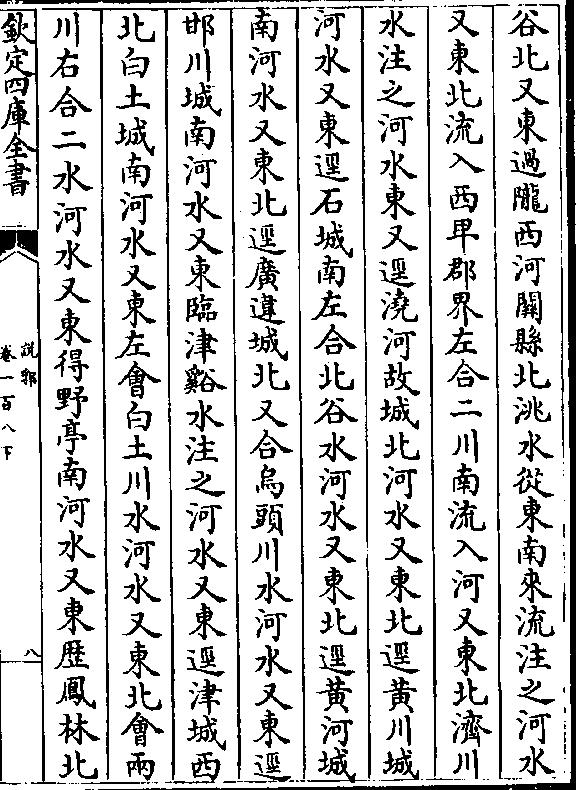 谷北又東過隴西河關縣北洮水從東南來流注之河水
又東北流入西平郡界左合二川南流入河又東北濟川
水注之河水東又逕澆河故城北河水又東北逕黃川城
河水又東逕石城南左合北谷水河水又東北逕黃河城
南河水又東北逕廣違城北又合烏頭川水河水又東逕
邯川城南河水又東臨津谿水注之河水又東逕津城西
北白土城南河水又東左會白土川水河水又東北會兩
川右合二水河水又東得野亭南河水又東歴鳳林北
欽定四庫全書
說郛
卷一百八下
八